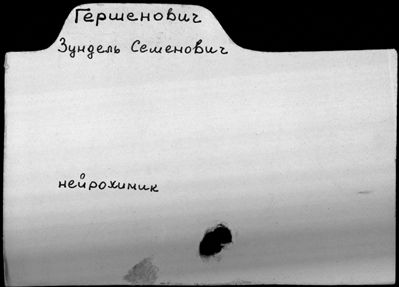 Гершенович
Зундель Семенович
нейрохимик